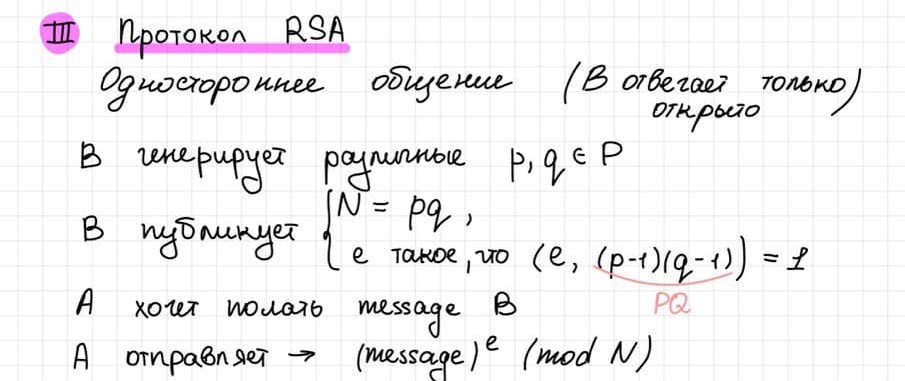 III Протокол RSA
Одностороннее общение (B отвечает только открыто)
B генерирует различные p, q ∈ P
B публикует { N = pq,
e такое, что (e, (p-1)(q-1)) = 1
PQ
A хочет полать message B
A отправляет → (message)^e (mod N)